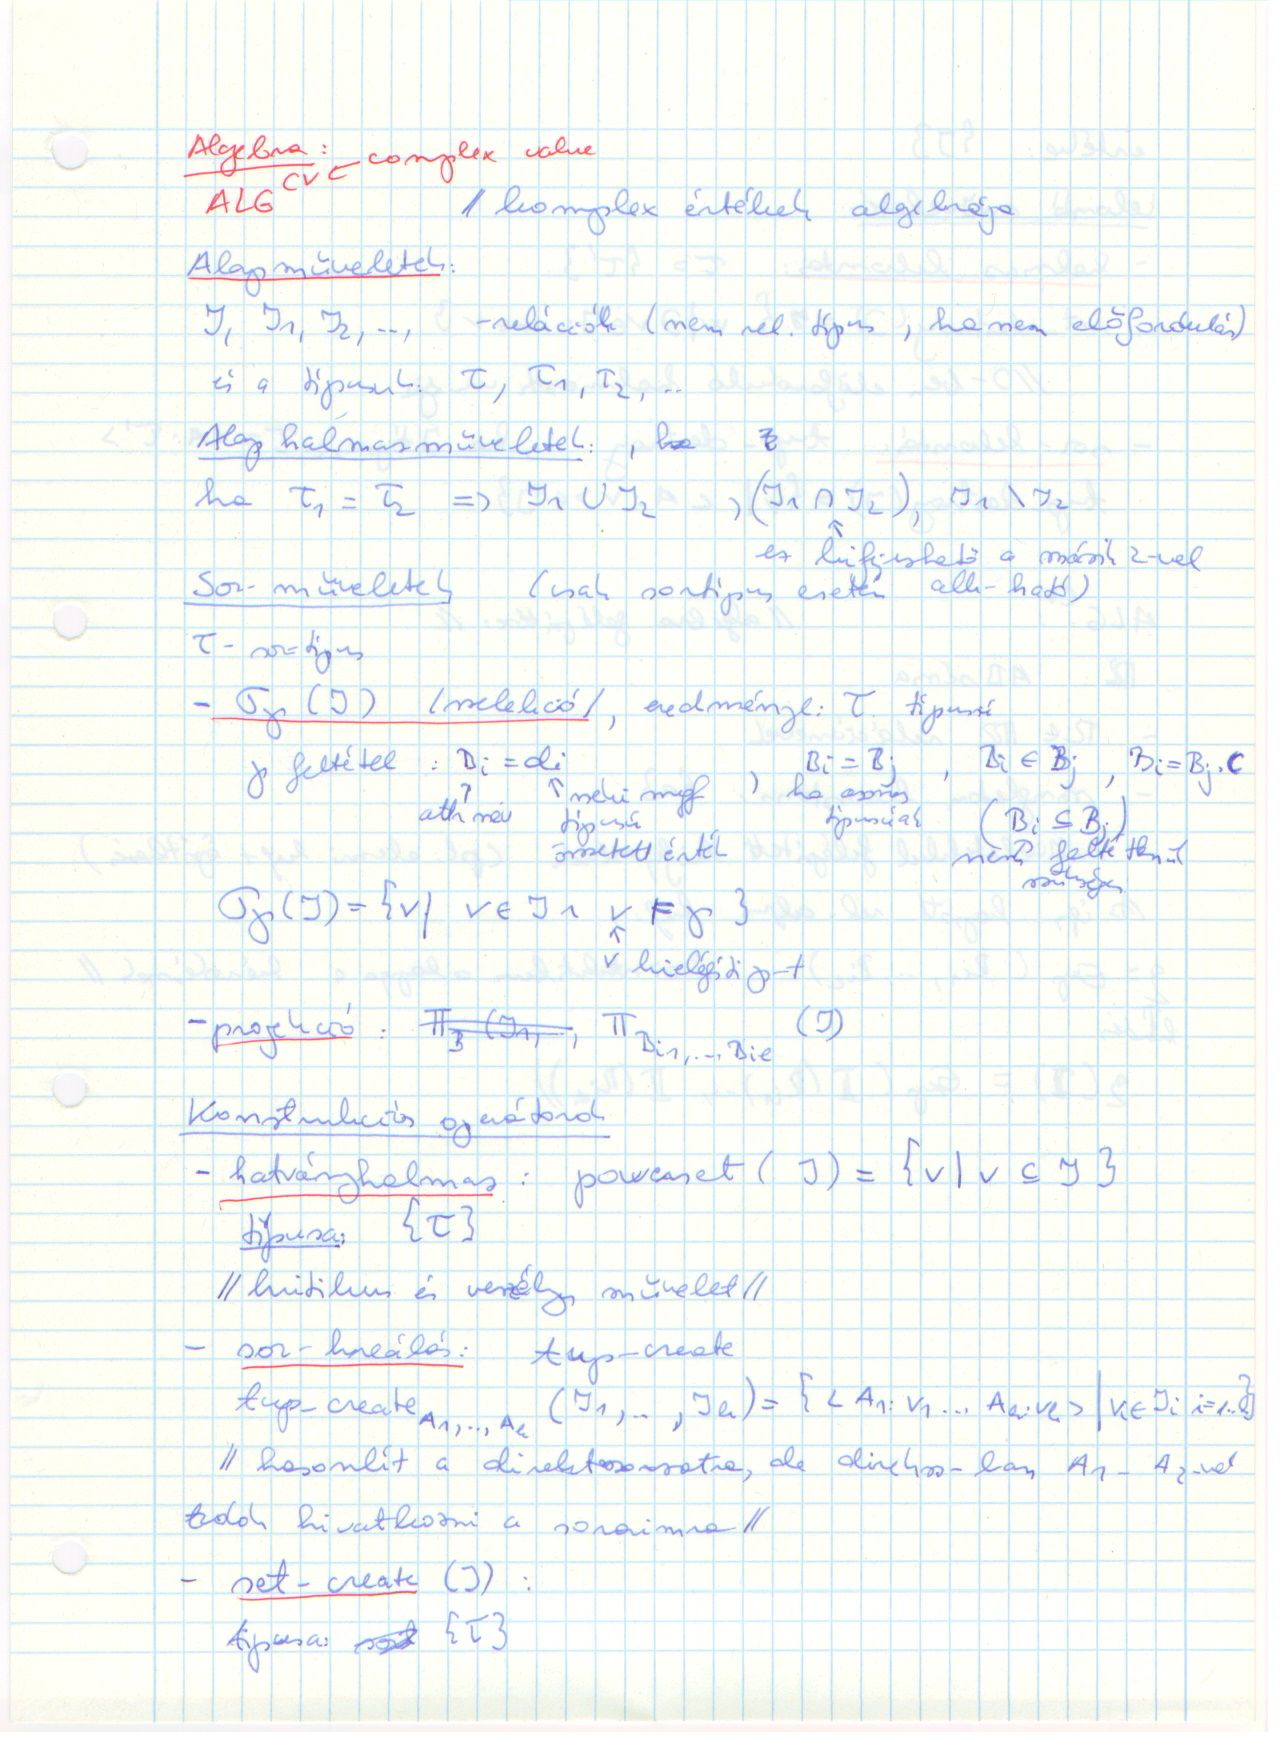 Algebra:
ALG^CV ← complex value
// komplex értékek algebrája
Alapműveletek:
J, J1, J2, ..., - relációk (nem rel. típus, hanem előfordulás)
és a típusuk: τ, τ1, τ2, ..
Alap halmazműveletek:, ha
ha τ1 = τ2 => J1 ∪ J2 , (J1 ∩ J2), J1 \ J2
↑
ez kifejezhető a másik 2-vel
Sor-műveletek (csak sortípus esetén alk-ható)
τ - sor-típus
- σγ(J) /szelekció/, eredménye: τ típusú
γ feltétel: Bi = di , Bi = Bj , Bi ∈ Bj , Bi = Bj.C
↑ attr név ↑ neki megf típusú összetett érték
ha azonos típusúak
(Bi ⊆ Bj) nem feltétlenül szükséges
σγ(J) = {v | v ∈ J ∧ v ⊨ γ }
↑
v kielégíti γ-t
- projekció: πBi1, ... Bie (J)
Konstrukciós operátorok
- hatványhalmaz: powerset (J) = {v | v ⊆ J}
típusa: {τ}
// kritikus és veszélyes művelet //
- sor-kreálás: tup-create
tup-create A1, .., Ak (J1, .. , Jk) = {< A1: v1 ... Ak: vk > | vi ∈ Ji i=1..k}
// hasonlít a direktszorzatra, de direktsz-ban A1 - A2-vel
tudok hivatkozni a soraimra //
- set-create (J) :
típusa: {τ}